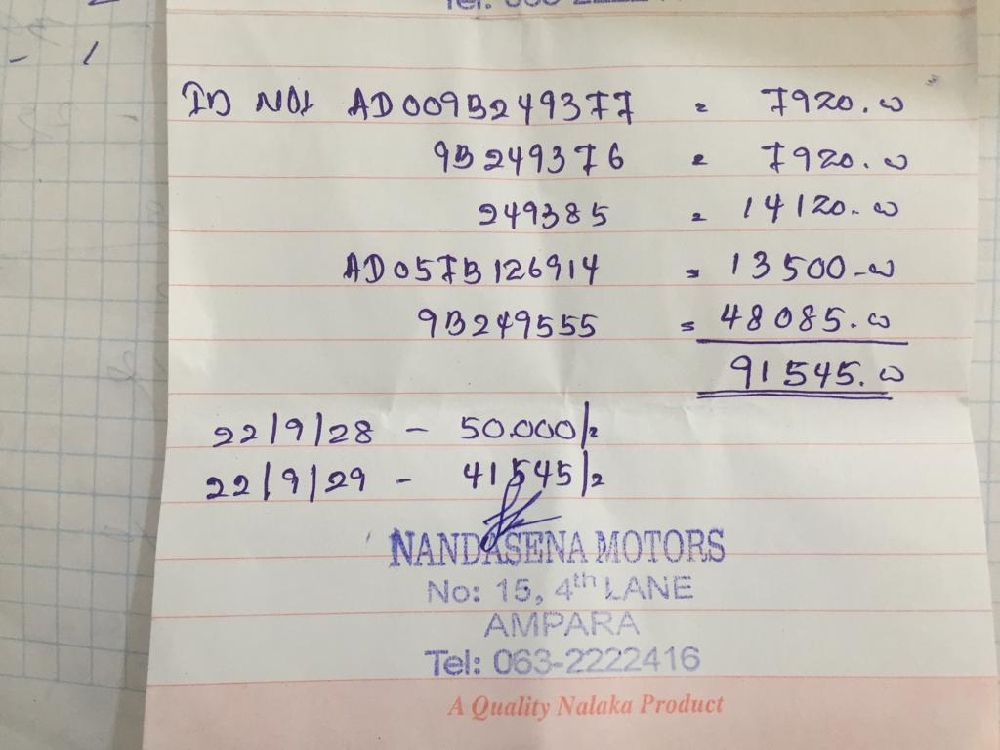 IN NO: AD009B249377 = 7920.00
9B249376 = 7920.00
249385 = 14120.00
AD057B126914 = 13500-00
9B249555 = 48085.00
91545.00
22/9/28 - 50.000/=
22/9/29 - 41545/=
NANDASENA MOTORS
No: 15, 4th LANE
AMPARA
Tel: 063-2222416
A Quality Nalaka Product